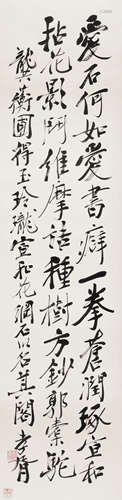 愛石何如愛書癖一拳蒼潤琢宣和
拈花影閒維摩語種樹方鈔郭橐駝
龔蘅圃得玉玲瓏宣和花洞石以名其閣孝胥